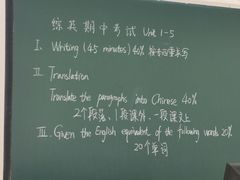 综英期中考试 Unit 1-5
I. Writing (45 minutes) 40% 按书四要求写
II. Translation
Translate the paragraphs into Chinese 40%
2个段落、1段课外、一段课上
III. Given the English equivalent of the following words 20%
20个单词